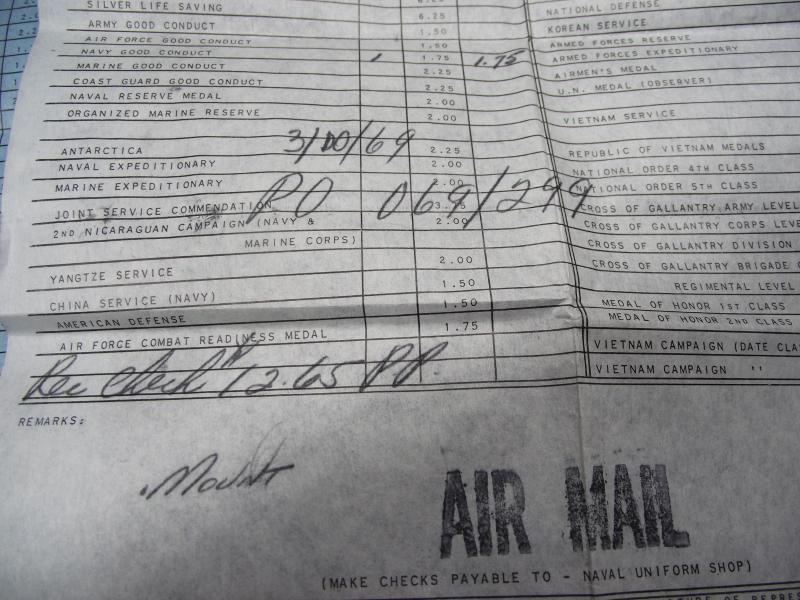 SILVER LIFE SAVING 6.25
ARMY GOOD CONDUCT 6.25
AIR FORCE GOOD CONDUCT 1.50
NAVY GOOD CONDUCT 1.50
MARINE GOOD CONDUCT 1 1.75 1.75
COAST GUARD GOOD CONDUCT 2.25
NAVAL RESERVE MEDAL 2.25
ORGANIZED MARINE RESERVE 2.00
2.00
3/00/69
ANTARCTICA 2.25
NAVAL EXPEDITIONARY 2.00
MARINE EXPEDITIONARY 2.00
PO 068/299
JOINT SERVICE COMMENDATION 3.75
2ND NICARAGUAN CAMPAIGN (NAVY & 2.00
MARINE CORPS)
YANGTZE SERVICE 2.00
CHINA SERVICE (NAVY) 1.50
AMERICAN DEFENSE 1.50
AIR FORCE COMBAT READINESS MEDAL 1.75
Rec Check 12.65 P.P.
NATIONAL DEFENSE
KOREAN SERVICE
ARMED FORCES RESERVE
ARMED FORCES EXPEDITIONARY
AIRMEN'S MEDAL
U.N. MEDAL (OBSERVER)
VIETNAM SERVICE
REPUBLIC OF VIETNAM MEDALS
NATIONAL ORDER 4TH CLASS
NATIONAL ORDER 5TH CLASS
CROSS OF GALLANTRY ARMY LEVEL
CROSS OF GALLANTRY CORPS LEVE
CROSS OF GALLANTRY DIVISION
CROSS OF GALLANTRY BRIGADE
REGIMENTAL LEVEL
MEDAL OF HONOR 1ST CLASS
MEDAL OF HONOR 2ND CLASS
VIETNAM CAMPAIGN (DATE CLA
VIETNAM CAMPAIGN "
REMARKS:
Mount
AIR MAIL
(MAKE CHECKS PAYABLE TO - NAVAL UNIFORM SHOP)